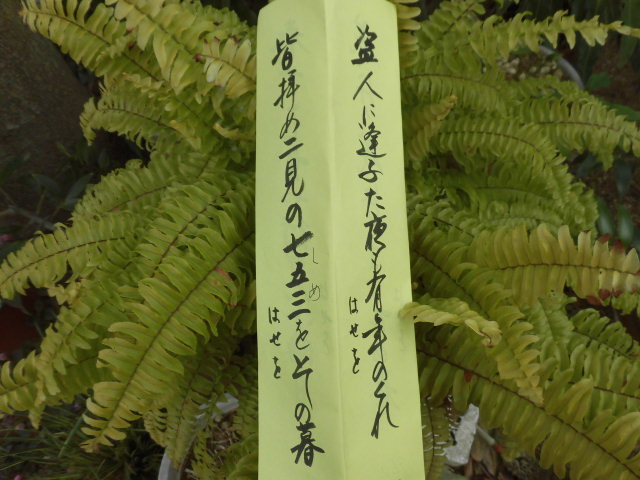 盗人に逢ふた夜も有年のくれ
はせを
皆拝め二見の七五三をとしの暮
しめ
はせを